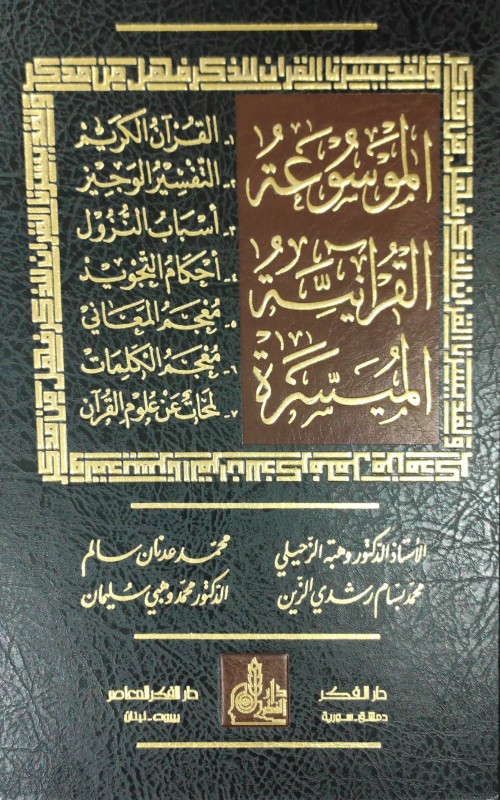 ولقد يسرنا القرآن للذكر فهل من مدكر
الموسوعة
القرآنية
الميسرة
١- القرآن الكريم
٢- التفسير الوجيز
٣- أسباب النزول
٤- أحكام التجويد
٥- معجم المعاني
٦- معجم الكلمات
٧- لمحات عن علوم القرآن
الأستاذ الدكتور وهبة الزحيلي محمد عدنان سالم
محمد بسام رشدي الزين الدكتور محمد وهبي سليمان
دار الفكر
دمشق - سورية
دار الفكر
دار الفكر المعاصر
بيروت - لبنان